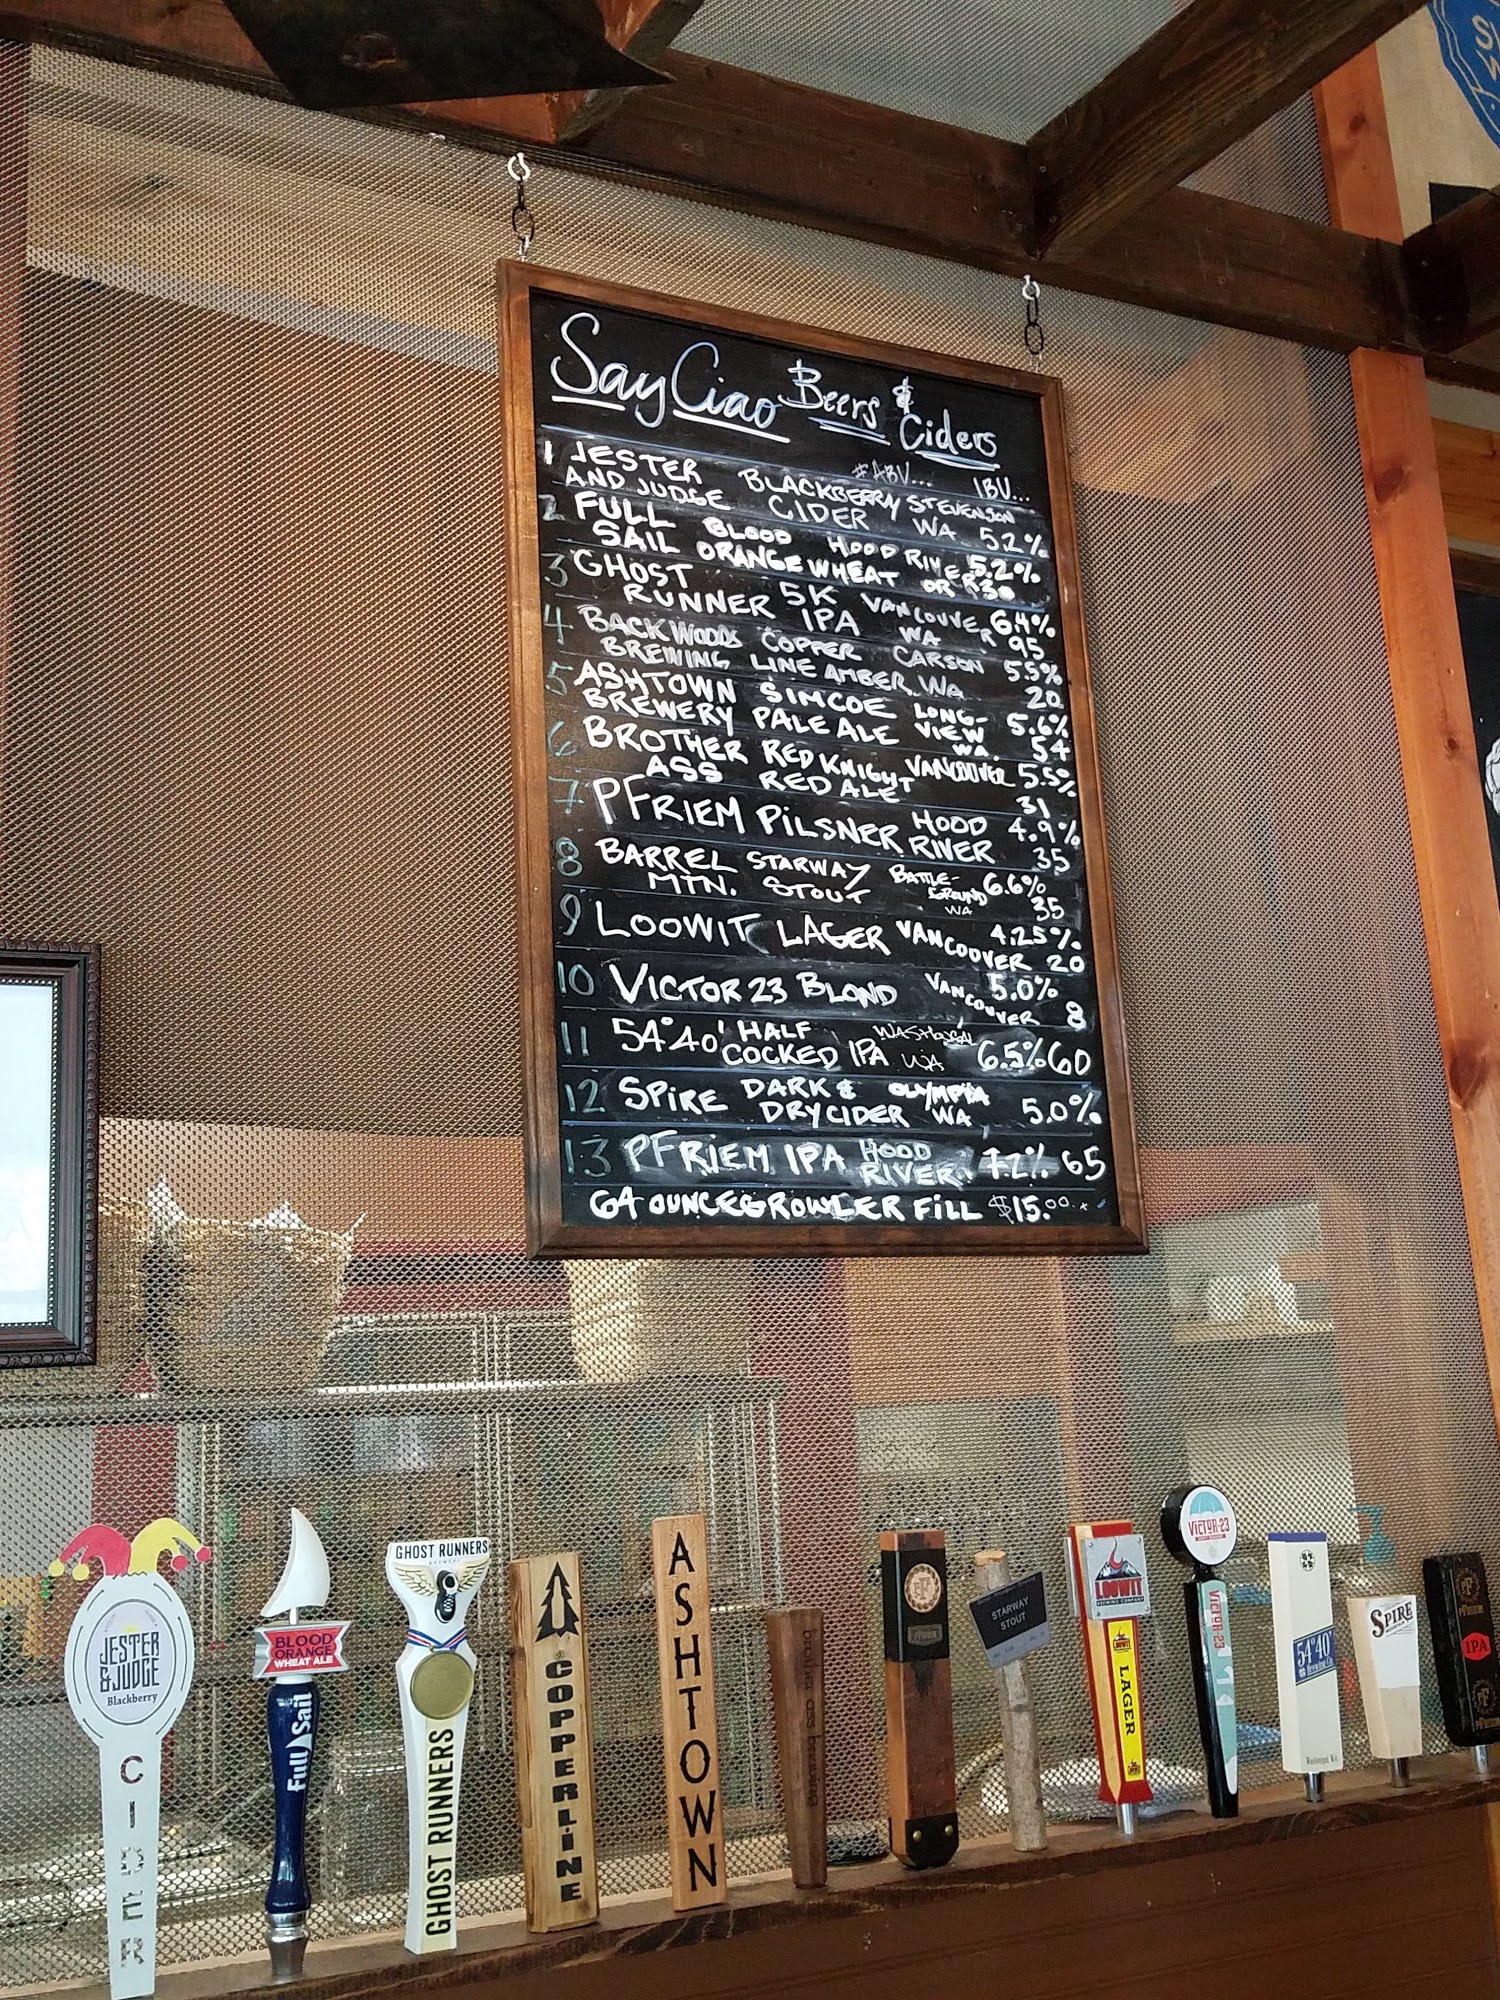 Say Ciao Beers &
Ciders
#ABV... IBU...
1 JESTER BLACKBERRY STEVENSON
AND JUDGE CIDER WA 5.2%
2 FULL BLOOD HOOD RIVER 5.2%
SAIL ORANGE WHEAT OR
3 GHOST 5K VANCOUVER 6.4%
RUNNER IPA WA 95
4 BACKWOODS COPPER CARSON 5.5%
BREWING LINE AMBER WA 20
5 ASHTOWN SIMCOE LONG- 5.6%
BREWERY PALE ALE VIEW WA. 54
6 BROTHER RED KNIGHT VANCOUVER 5.5%
ASS RED ALE 31
7 PFRIEM PILSNER HOOD 4.9%
RIVER 35
8 BARREL STARWAY BATTLE- 6.6%
MTN. STOUT GROUND WA 35
9 LOOWIT LAGER VANCOUVER 4.25%
20
10 VICTOR 23 BLOND VANCOUVER 5.0%
8
11 54°40' HALF WASHOUGAL
COCKED IPA WA 6.5% 60
12 SPIRE DARK & OLYMPIA
DRY CIDER WA 5.0%
13 PFRIEM IPA HOOD 7.2% 65
RIVER
64 OUNCE GROWLER FILL $15.00
JESTER
& JUDGE
Blackberry
CIDER
BLOOD
ORANGE
WHEAT ALE
Full Sail
GHOST RUNNERS
BREWERY
GHOST RUNNERS
COPPERLINE
ASHTOWN
brother ass brewing
PFRIEM
STARWAY
STOUT
LOOWIT
BREWING COMPANY
LAGER
VICTOR-23
VICTOR-23
54°40'
Brewing Co.
Washougal, WA
SPIRE
PFRIEM
IPA
PFRIEM